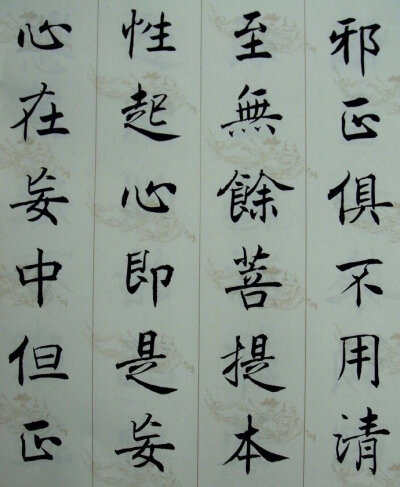 邪正俱不用清
至無餘菩提本
性起心即是妄
心在妄中但正